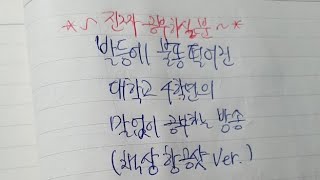 * ~ 진짜 공부하실분 ~ *
발등에 불똥 떨어진
대학교 4학년의
말없이 공부하는 방송
(책상 항공샷 Ver.)